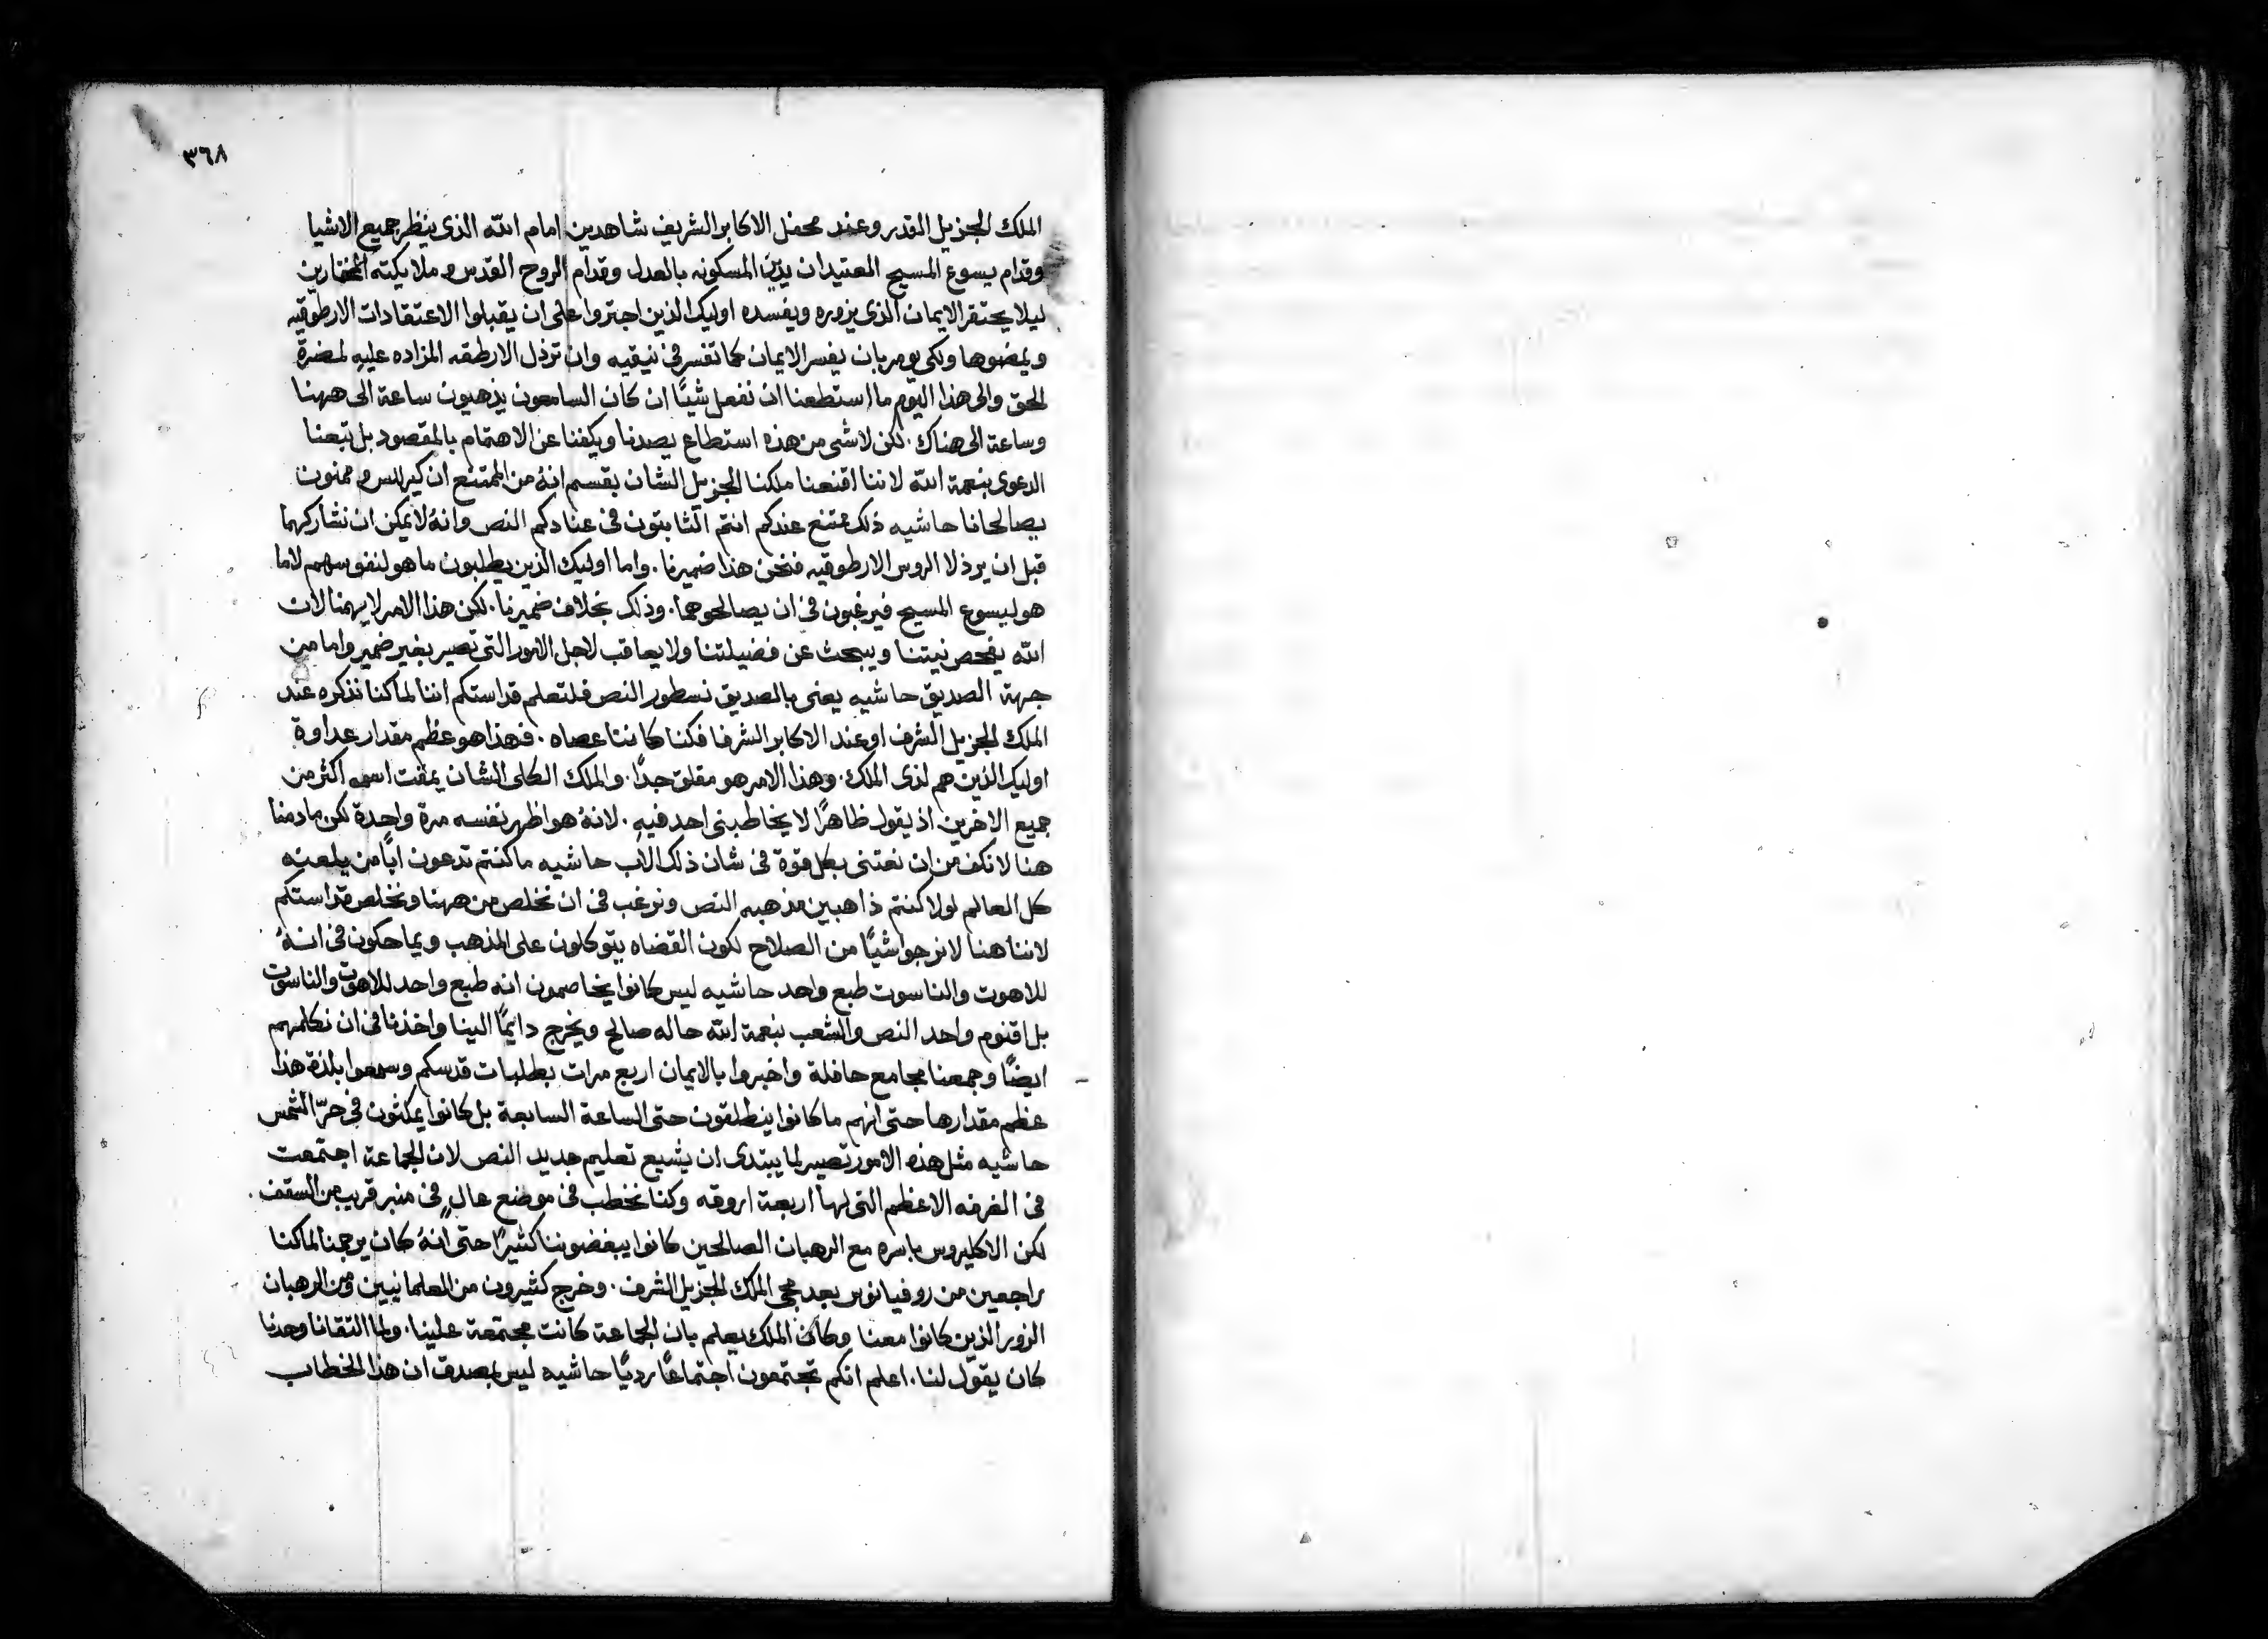 ٣٦٨
الملك الجزيل القدر وعند محفل الاكابر الشريف شاهدين امام الله الذى ينظر جميع الاشيا
وقدام يسوع المسيح المعتيد ان يدين المسكونه بالعدل وقدام الروح القدس وملايكته المختارين
ليلا يحتقر الايمان الذى يزوره ويفسده اوليك الذين اجتروا على ان يقبلوا الاعتقادات الارطوقيه
ويمضوها ولكى يومر بان يفسر الايمان كما تفسر فى نيقيه وان ترذل الارطقه المزاده عليه لمضرة
الحق والى هذا اليوم ما استطعنا ان نفعل شيًا ان كان السامعون يذهبون ساعة الى ههنا
وساعة الى هناك. لكن لا شى من هذه استطاع يصدنا ويكفنا عن الاهتمام بالمقصود بل تبعنا
الدعوى بنعمة الله لاننا اقنعنا ملكنا الجزيل الشان بقسم انهُ من الممتنع ان كيرللس وممنون
يصالحانا حاشيه ذلك ممتنع عندكم انتم الثابتون فى عنادكم النص وانهُ لا يمكن ان نشاركهما
قبل ان يرذلا الروس الارطوقيه فنحن هذا ضميرنا. واما اوليك الذين يطلبون ما هو لنفوسهم لا ما
هو ليسوع المسيح فيرغبون فى ان يصالحوهما. وذلك بخلاف ضميرنا. لكن هذا الامر لا يهمنا لان
الله يفحص نيتنا ويبحث عن فضيلتنا ولا يعاقب لاجل الامور التى تصير بغير ضمير واما من
جهة الصديق حاشيه يعنى بالصديق نسطور النص فلتعلم قداستكم اننا لما كنا نذكره عند
الملك الجزيل الشرف او عند الاكابر الشرفا فكنا كاننا عصاه. فهذا هو عظم مقدار عداوة
اوليك الذين هم لدى الملك. وهذا الامر هو مقلق جدًا. والملك الكلى الشان يمقت اسمه اكثر من
جميع الاخرين اذ يقول ظاهرًا لا يخاطبنى احد فيهِ. لانهُ هو اظهر نفسه مرة واحدة لكن ما دمنا
هنا لا نكف من ان نعتنى بكل قوة فى شان ذلك الاب حاشيه ما كنتم تدعون ابًا من يلعنه
كل العالم لولا كنتم ذاهبين مذهبه النص ونرغب فى ان نخلص من ههنا ونخلص قداستكم
لاننا هنا لا نرجوا شيًا من الصلاح لكون القضاه يتوكلون على المذهب ويماحكون فى انهُ
للاهوت والناسوت طبع واحد حاشيه ليس كانوا يخاصمون انه طبع واحد للاهوت والناسوت
بل اقنوم واحد النص والشعب بنعمة الله حاله صالح ويخرج دايمًا الينا واخذنا فى ان نكلمهم
ايضًا وجمعنا مجامع حافلة واخبروا بالايمان اربع مرات بطلبات قدسكم وسمعوا بلذة هذا
عظم مقدارها حتى انهم ما كانوا ينطلقون حتى الساعة السابعة بل كانوا يمكثون فى حرّ الشمس
حاشيه مثل هذه الامور تصير لما يبتدى ان يشيع تعليم جديد النص لان الجماعة اجتمعت
فى الغرفه الاعظم التى لها اربعة اروقه وكنا نخطب فى موضع عالٍ فى منبر قريب من السقف.
لكن الاكليروس باسره مع الرهبان الصالحين كانوا يبغضوننا كثيرًا حتى انهُ كان يرجمنا لما كنا
راجعين من روفيانوس بعد مجى الملك الجزيل الشرف. وخرج كثيرون من العلمانيين ومن الرهبان
الزور الذين كانوا معنا وكان الملك يعلم بان الجماعة كانت مجتمعة علينا. ولما التقانا وحدنا
كان يقول لنا. اعلم انكم تجتمعون اجتماعًا رديًا حاشيه ليس بصدق ان هذا الخطاب